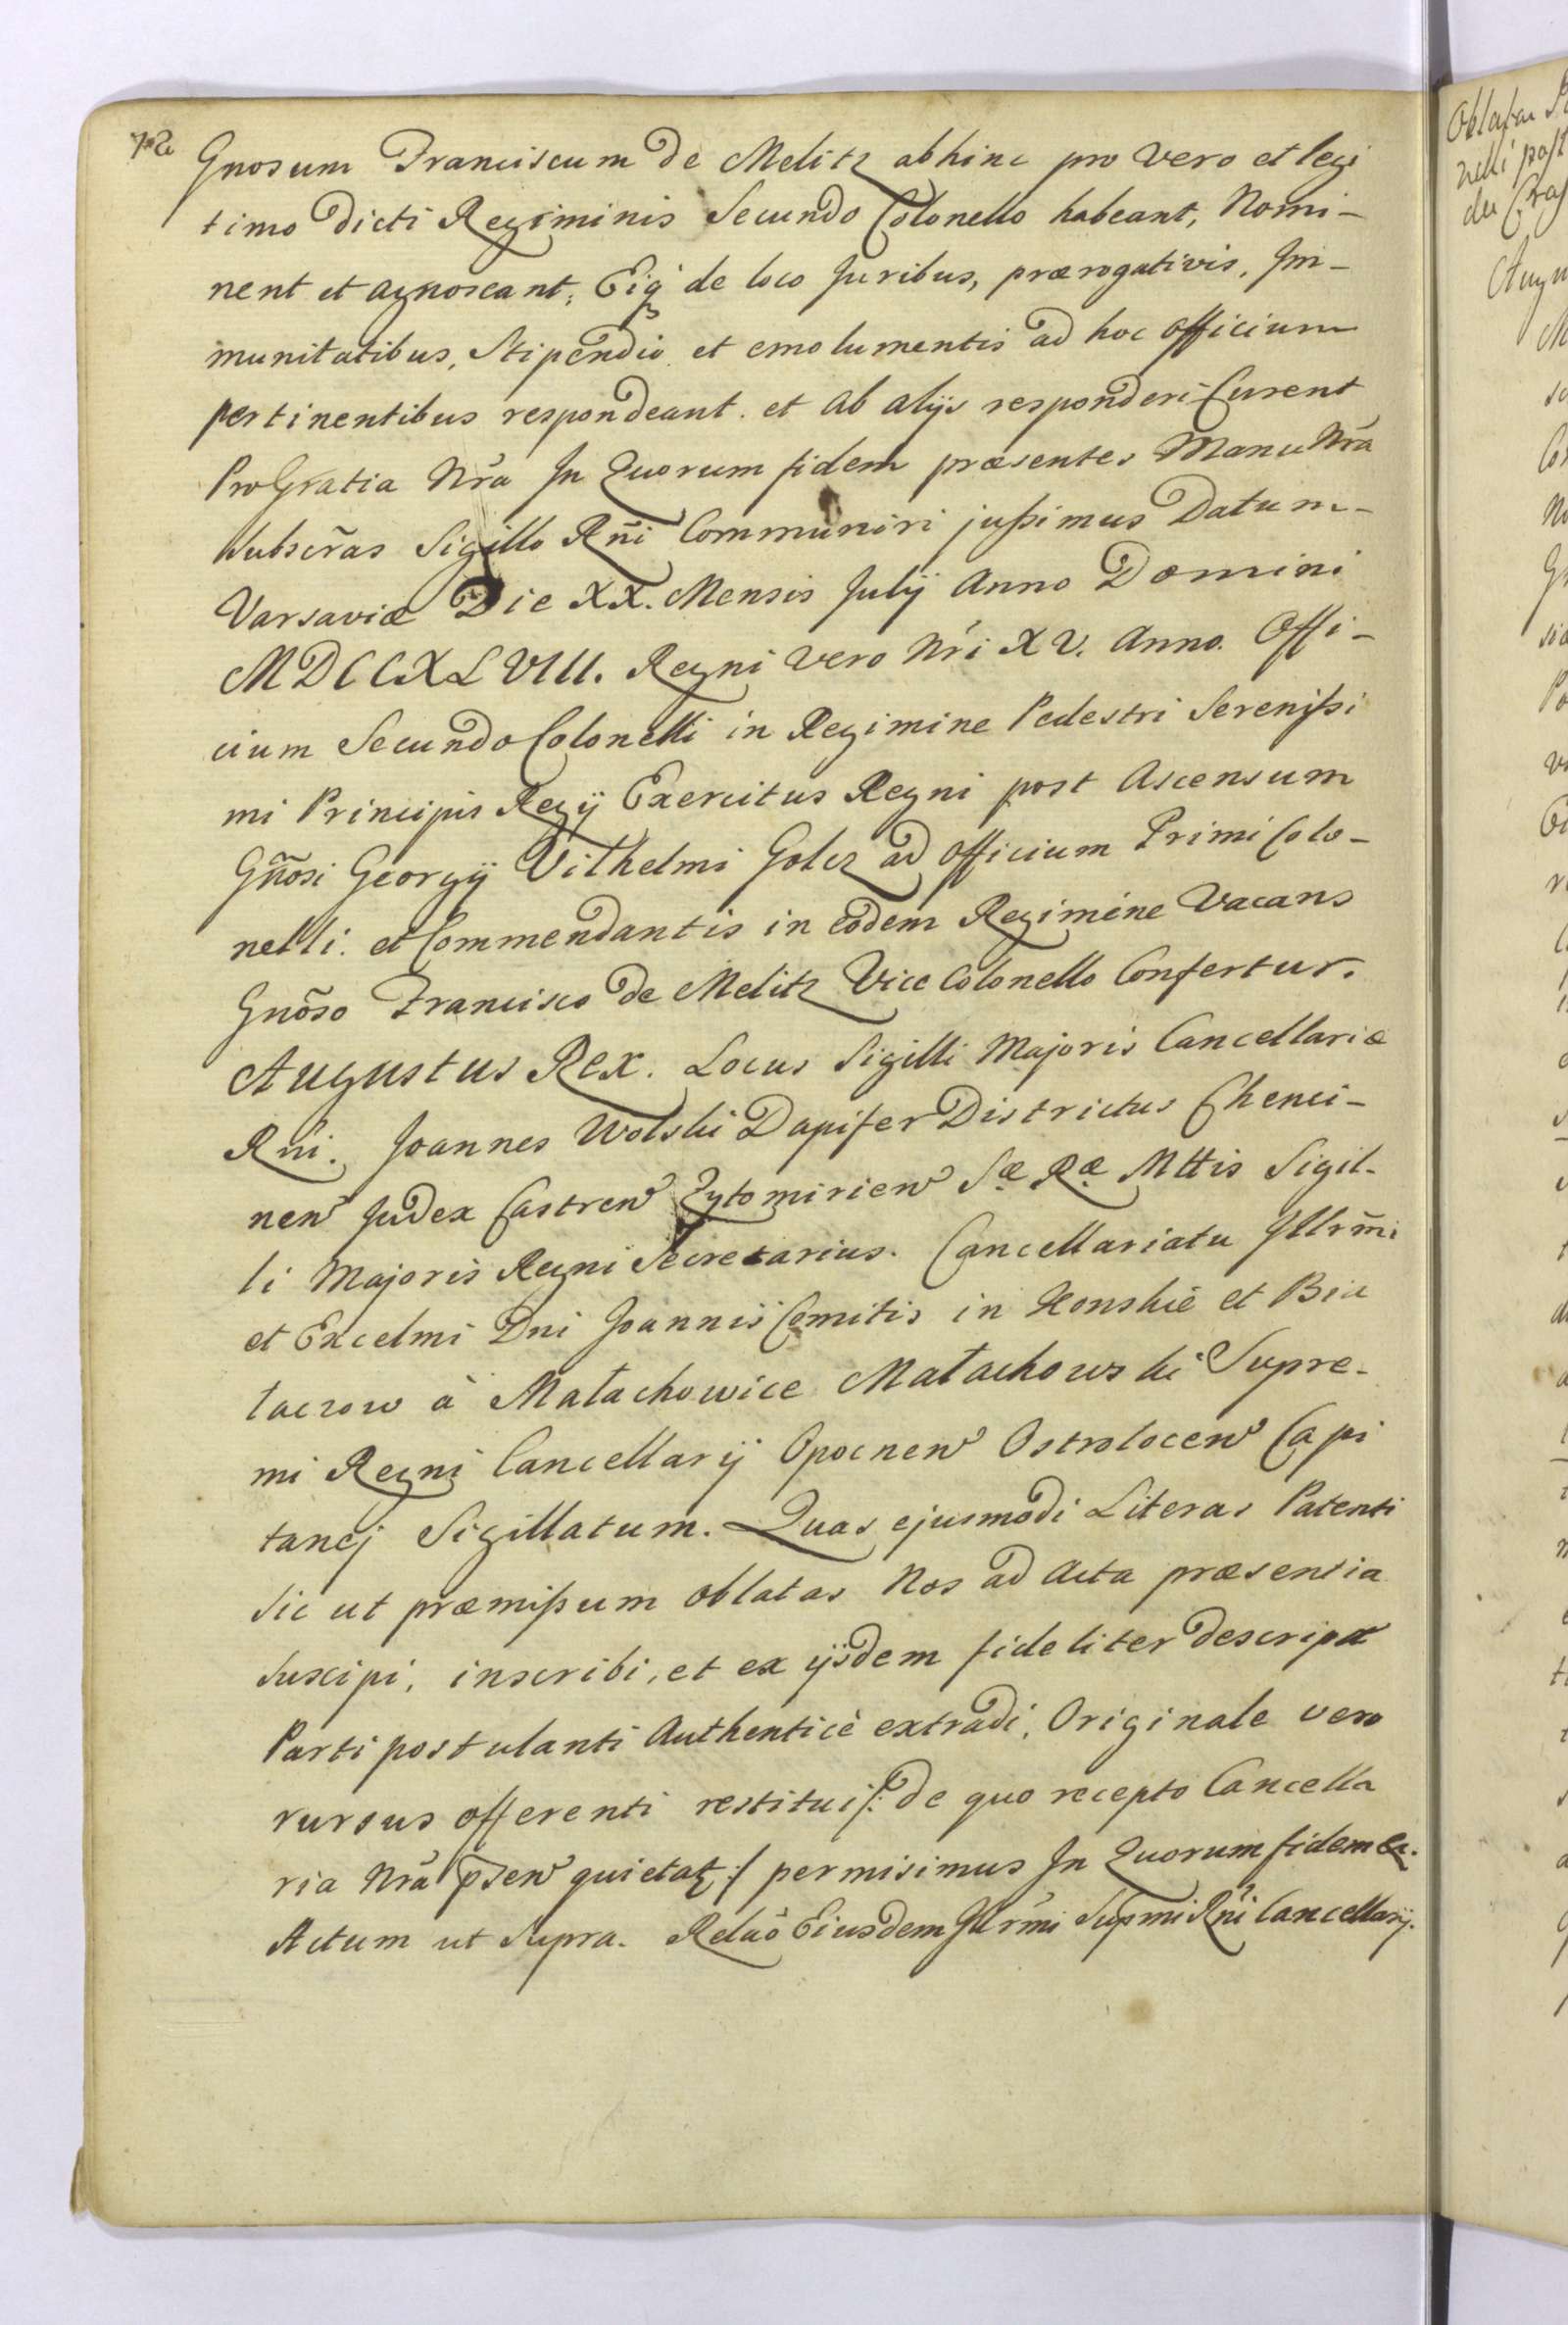 Gnosum Franciscum de Melitz abhinc pro vero et legi
timo dicti Regiminis Secundo Colonello habeant, Nomi-
nent et agnoscant, Eiq de loco Juribus, prærogativis, Im-
munitatibus, Stipendio et emolumentis ad hoc officium
pertinentibus respondeant. et ab alijs responderi Curent
Pro Gratia Nrã In Quorum fidem præsentes Manu Nrã
Subscr̃as Sigillo Rñi Communiri jußimus Datum-
Varsaviæ Die XX. Mensis Julij Anno Domini
MDCCXLVIII. Regni vero Nri XV. Anno. Offi-
cium Secundo Colonelli in Regimine Pedestri Serenißi
mi Principis Regij Exercitus Regni post Ascensum
Gñosi Georgij Vilhelmi Golcz ad officium Primi Colo-
nelli. et Commendantis in eodem Regimine Vacans
Gnõso Francisco de Melitz Vice Colonello Confertur.
Augustus Rex. Locus Sigilli Majoris Cancellariæ
Rni. Joannes Wolski Dapifer Districtus Chenci-
nen Judex Castren Zytomirien Sæ Ræ Mttis Sigil-
li Majoris Regni Secretarius. Cancellariatu Illrm̃i
et Excelmi Dni Joannis Comitis in Konskie et Bia
łaczow à Małachowice Małachowski Supre-
mi Regni Cancellarij Opocnen Ostrołocen Capi
tanej Sigillatum. Quas ejusmodi Literas Patenti
sic ut præmißum oblatas Nos ad Acta præsentia
suscipi, inscribi, et ex ijsdem fideliter descriptæ
Parti postulanti Authenticè extradi, Originale vero
rursus offerenti restitui /: de quo recepto Cancella
ria Nrã p̃sen quietat :/ permisimus In Quorum fidem &.
Actum ut Supra. Relaõ Eiusdem Illrmi Supmi Rñi Cancellarij.
Oblatae
nelli post